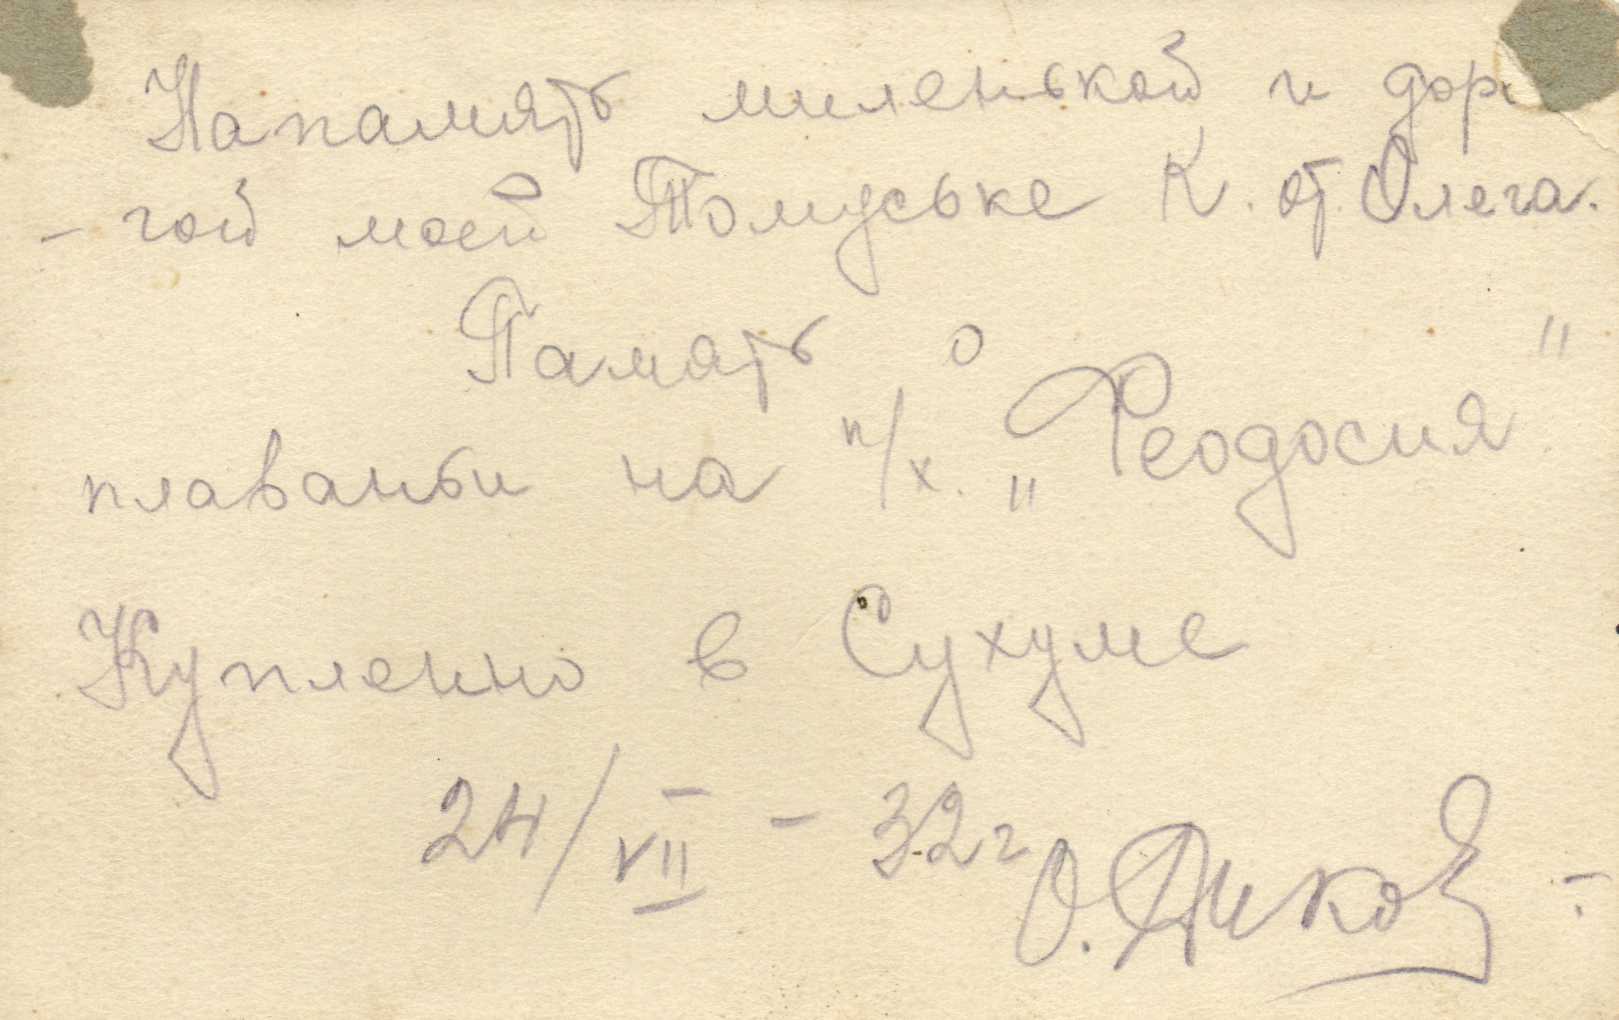 Напамять миленькой и дор
- гой моей Томуське К. от Олега.
Память о
плаваньи на п/х. „Феодосия"
Купленно в Сухуме
24/VII - 32 г
О. Диков -